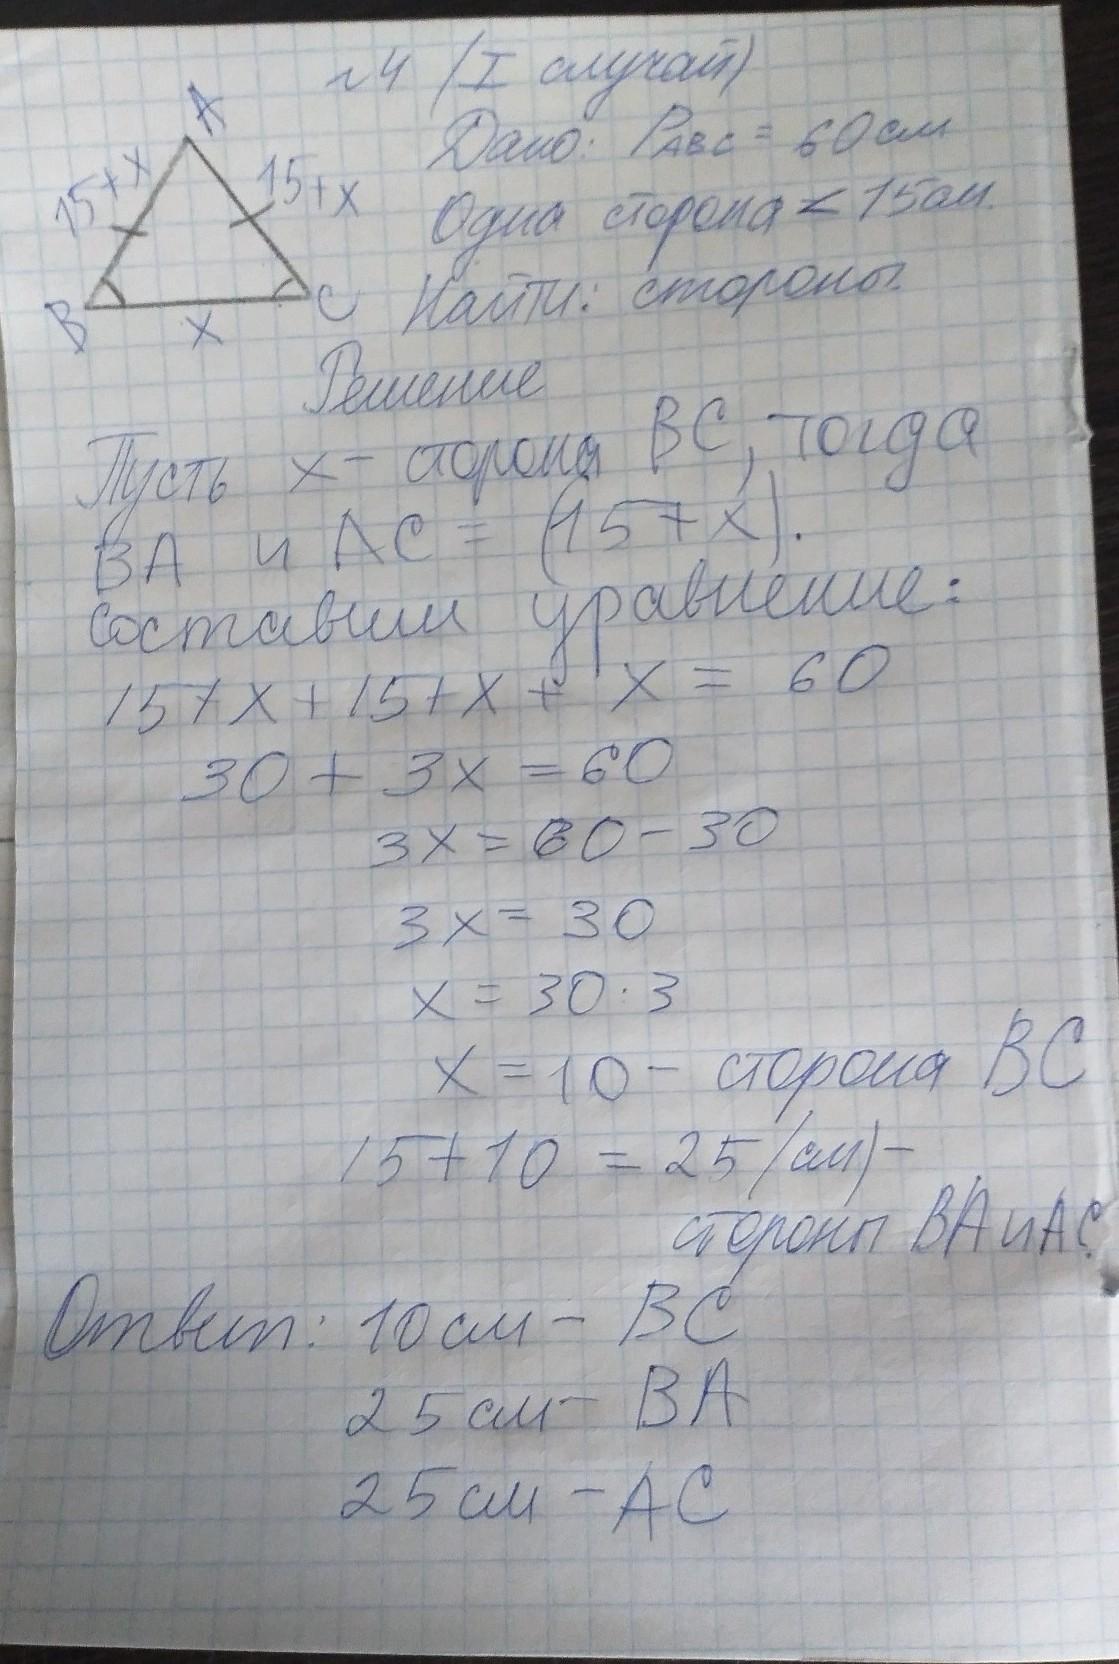 №4 (I случай)
A
15+x
15+x
B
C
x
Дано: PABC = 60см
Одна сторона < 15см.
Найти: стороны.
Решение
Пусть x – сторона BC, тогда
BA и AC = (15+x).
Составим уравнение:
15+x+15+x+ x = 60
30 + 3x = 60
3x = 60 – 30
3x = 30
x = 30 : 3
x = 10 – сторона BC
15+10 = 25 (см) –
стороны BA и AC.
Ответ: 10см – BC
25см – BA
25см – AC